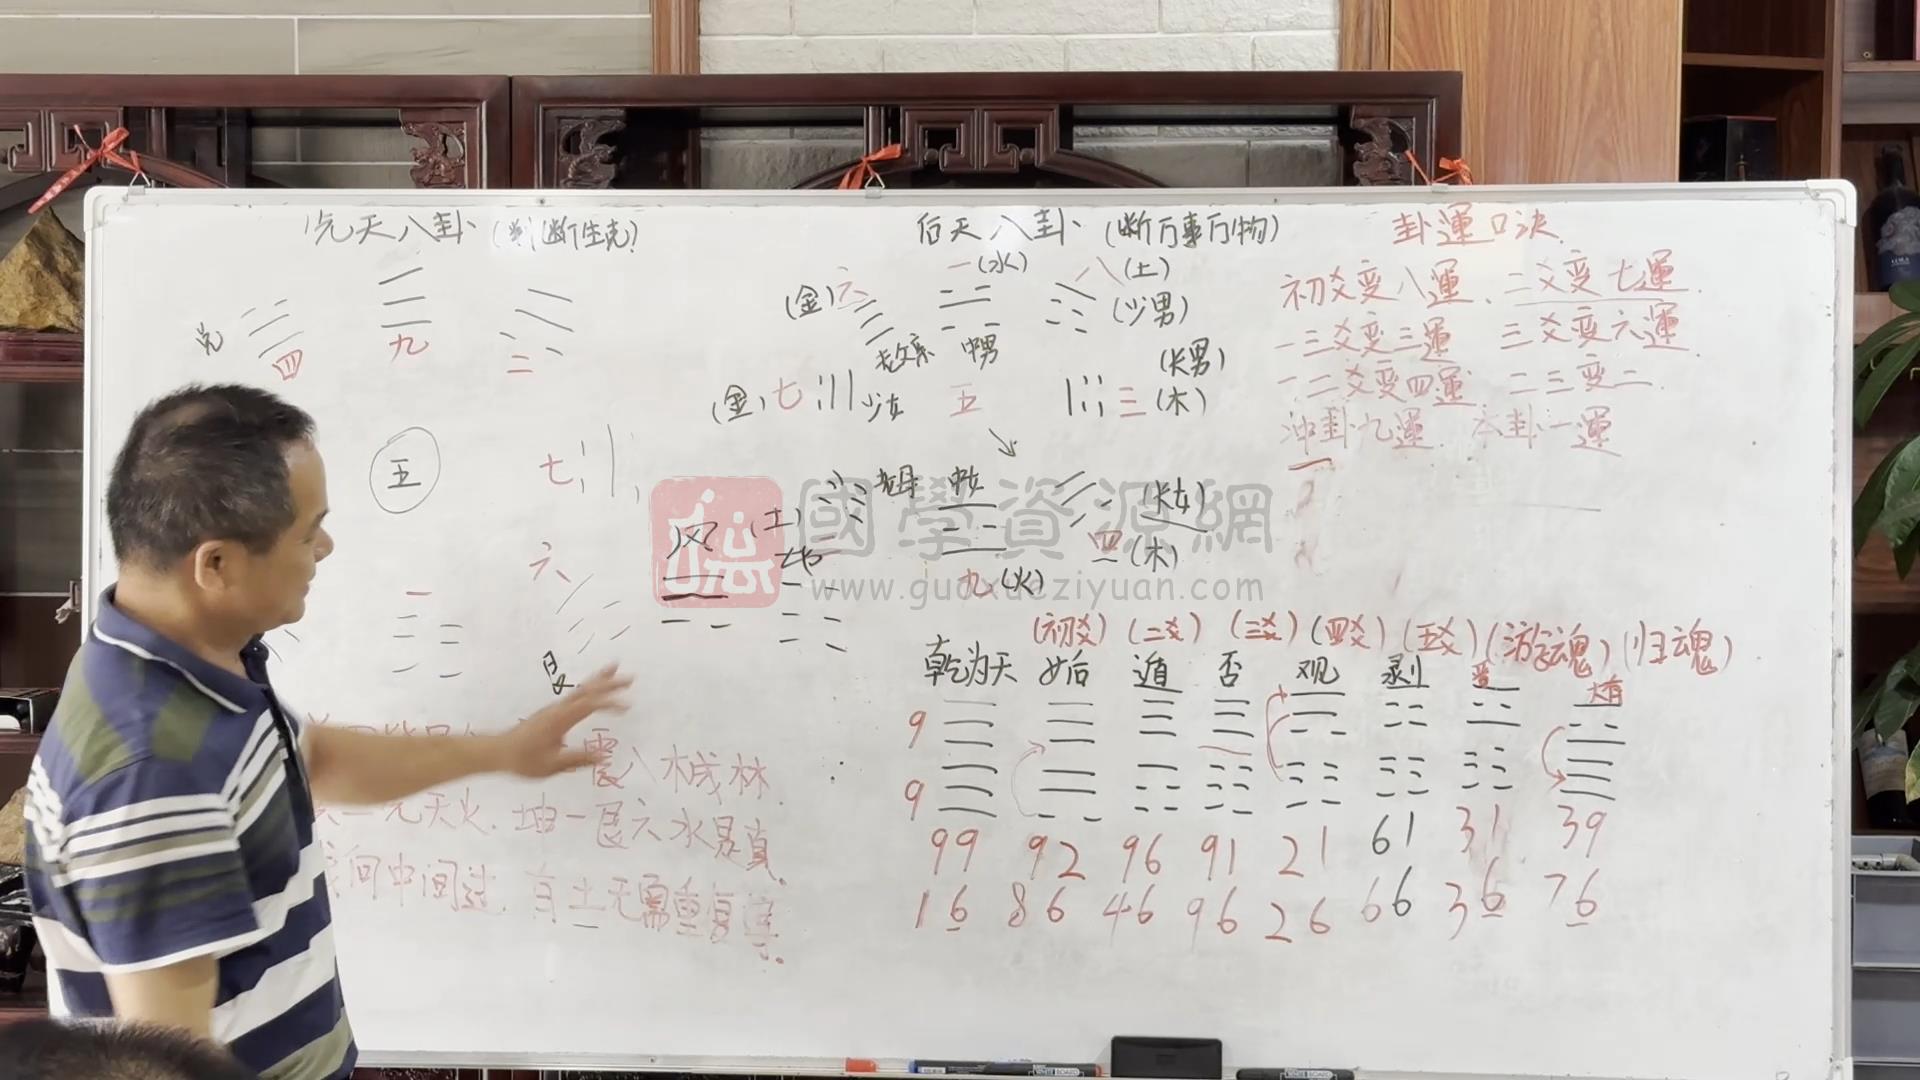 先天八卦 (判断生克)
兑
四
九
二
五
七
六
一
艮
后天八卦 (断万事万物)
一 (水)
(金) 六
八 (土)
(少男)
老父亲 中男
(长男)
(金) 七 少女 五 三 (木)
老母 中女 (长女)
(土) 二
四 (木)
九 (火)
风
地
卦運口决
初爻变八運、二爻变七運.
一三爻变三運 三爻变六運
一二爻变四運 二三变二
冲卦九運. 本卦一運
震八木成林.
元天火. 坤一艮六水是真.
间中间过. 有土无需重复算.
(初爻) (二爻) (三爻) (四爻) (五爻) (游魂) (归魂)
乾为天 姤 遁 否 观 剥 晋 大有
9
9
99 92 96 91 21 61 31 39
16 86 46 96 26 66 36 76
國學資源網
www.guoxueziyuan.com